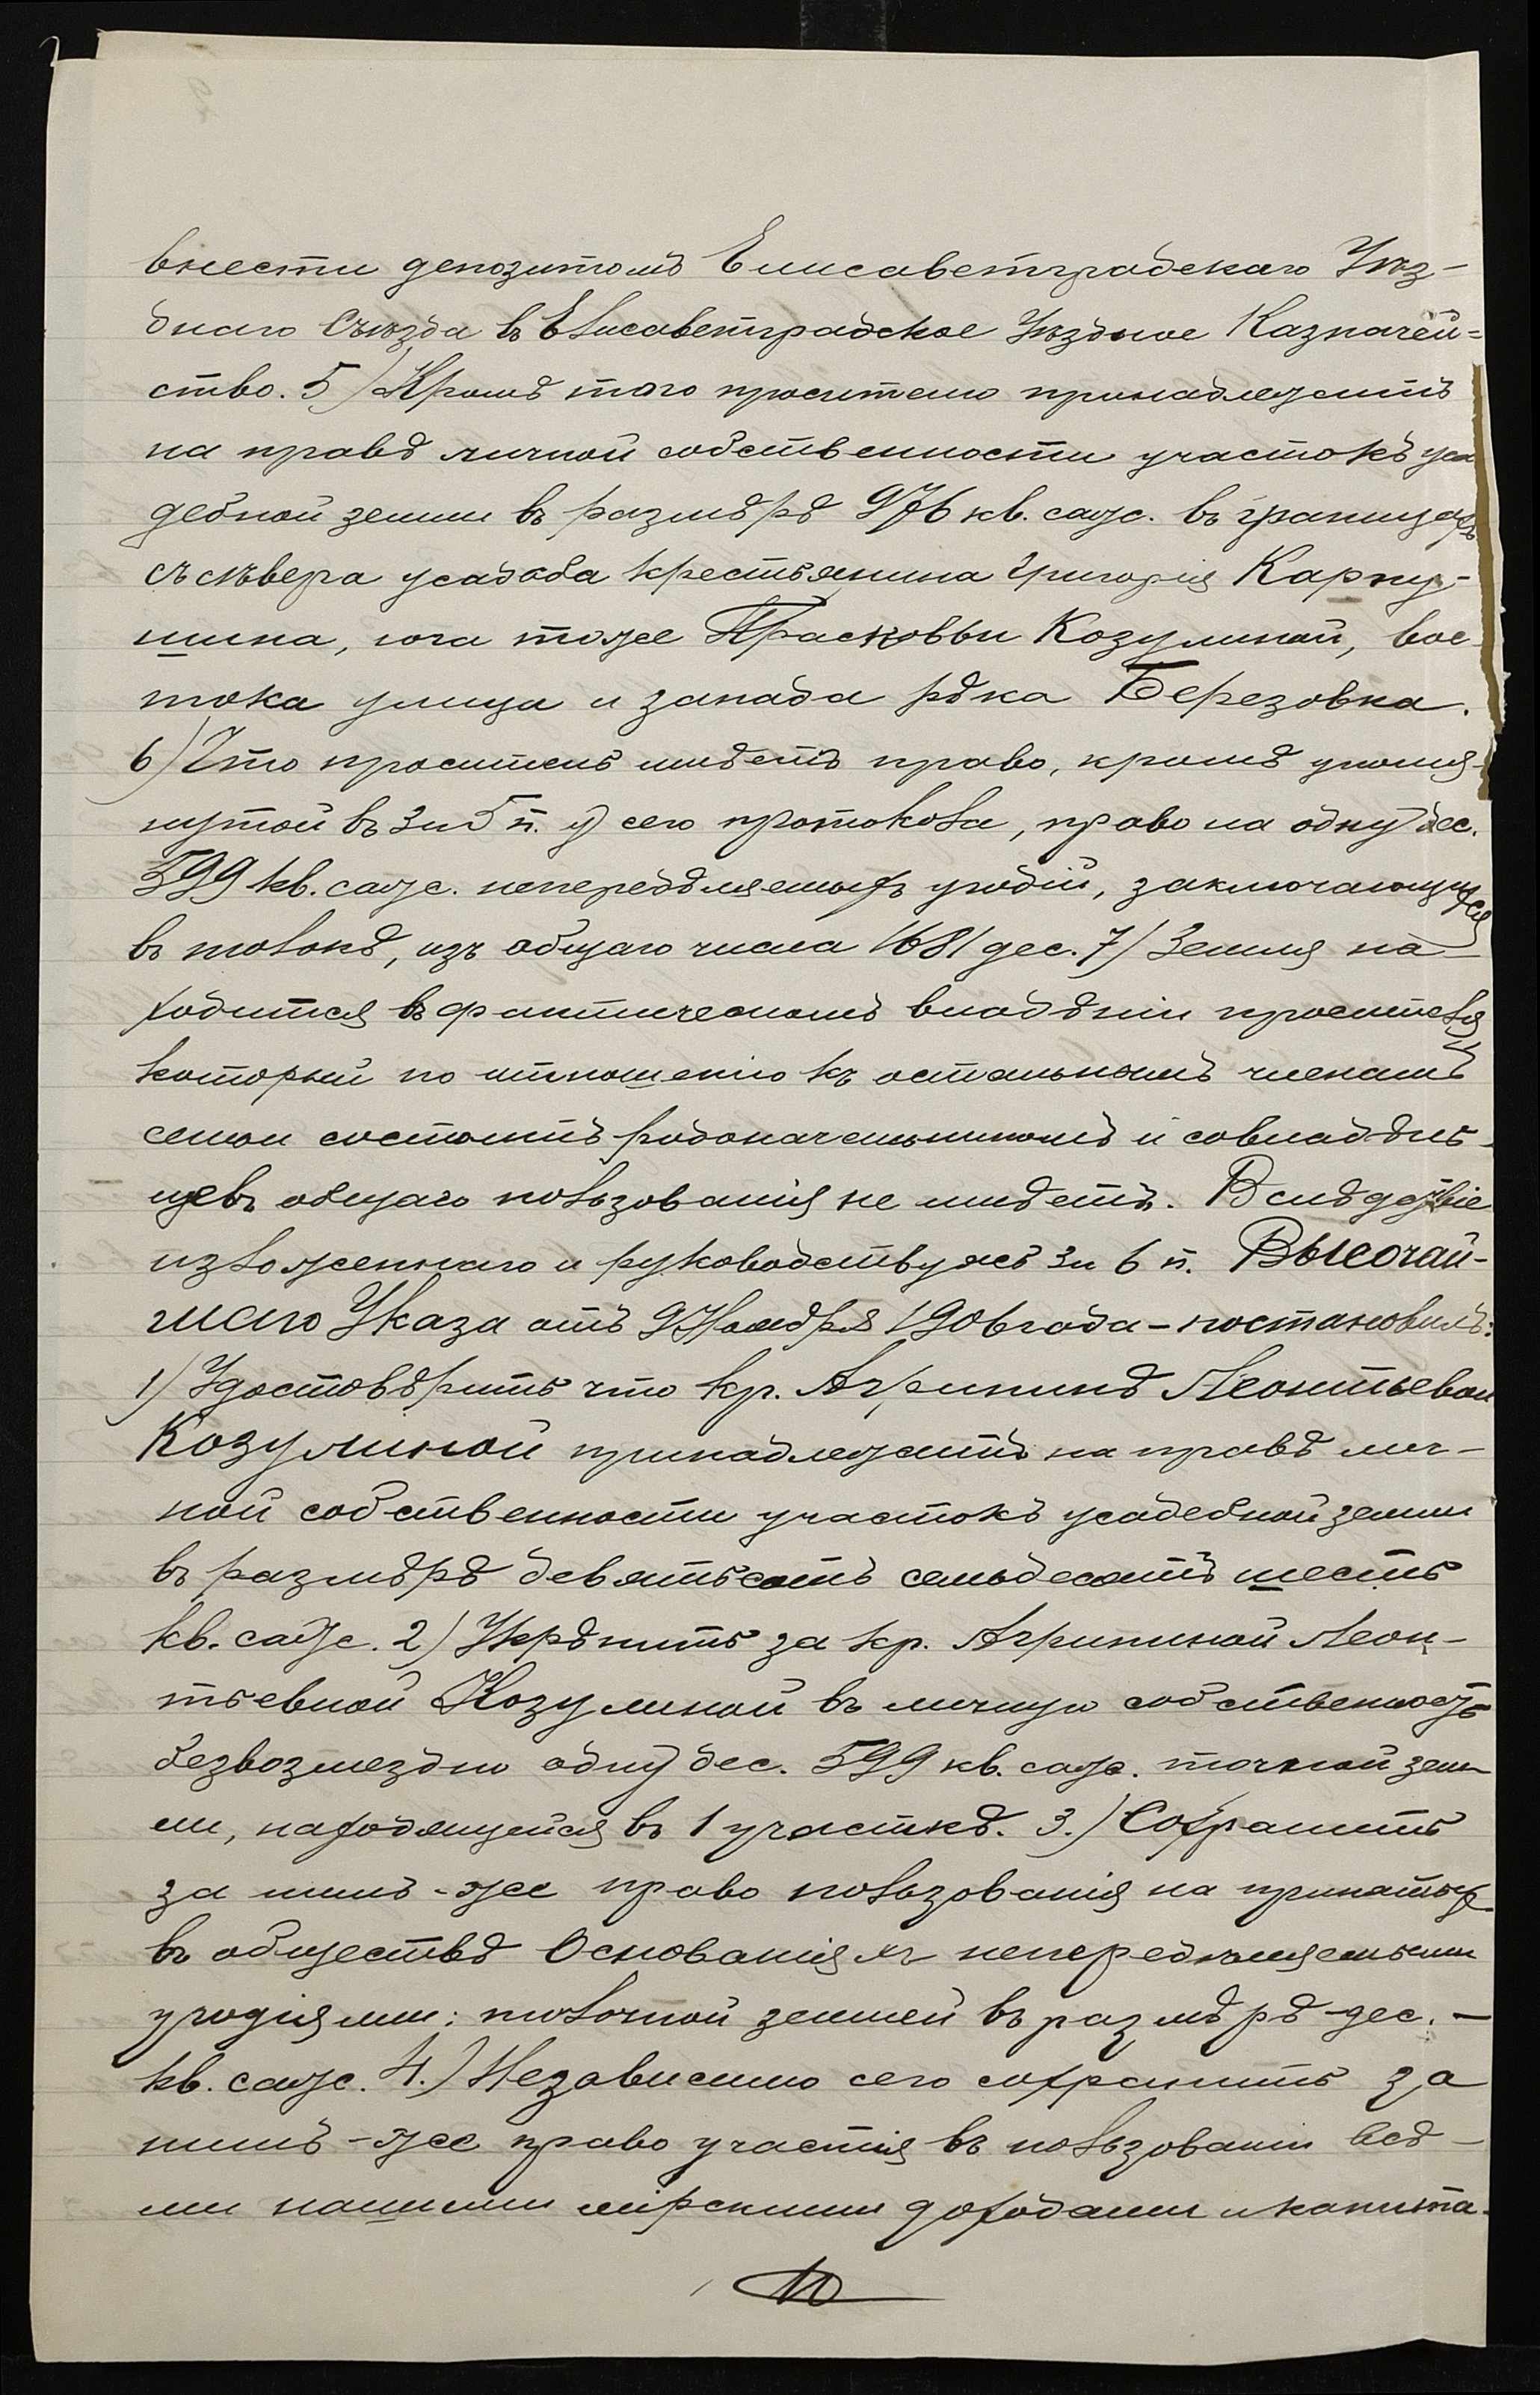 внести депозитомъ Елисаветградскаго Уѣз-
днаго Съѣзда въ Елисаветградское Уѣздное Казначей=
ство. 5) Кромѣ того просителю принадлежитъ
на правѣ личной собственности участокъ уса
дебной земли въ размѣрѣ 976 кв. саж. въ границахъ
съ сѣвера усадьба крестьянина Григорія Карпу-
шина, юга тоже Прасковьи Козулиной, вос-
тока улица и запада рѣка Березовка.
6) Что проситель имѣетъ право, кромѣ упомя-
нутой въ 3 и 5 п. у) сего протокола, право на одну дес.
599 кв. саж. непередѣляемыхъ угодій, заключающихся
въ толокѣ, изъ общаго числа 1681 дес. 7) Земля на-
ходится въ фактическомъ владѣніи просителя
который по отношенію къ остальнымъ членамъ
семьи состоитъ родоначальникомъ и совладѣль-
цевъ общаго пользованія не имѣетъ. Вслѣдствіе
изложеннаго и руководствуясь 3 и 6 п. Высочай-
шаго Указа отъ 9 Ноября 1906 года – постановилъ:
1) Удостовѣрить что кр. Агрипинѣ Леонтьевой
Козулиной принадлежитъ на правѣ лич-
ной собственности участокъ усадебной земли
въ размѣрѣ девятьсотъ семьдесятъ шесть
кв. саж. 2) Укрѣпить за кр. Агрипиной Леон-
тьевной Козулиной въ личную собственность
безвозмездно одну дес. 599 кв. саж. точной зем-
ли, находящейся въ 1 участкѣ. 3.) Сохранить
за нимъ-же право пользованія на принятыхъ
въ обществѣ Основаніяхъ непередѣляемыми
угодіями: толочной землей въ размѣрѣ – дес. –
кв. саж. 4.) Независимо сего сохранить за
нимъ-же право участія въ пользованіи всѣ-
ми нашими мірскими доходами и капита-